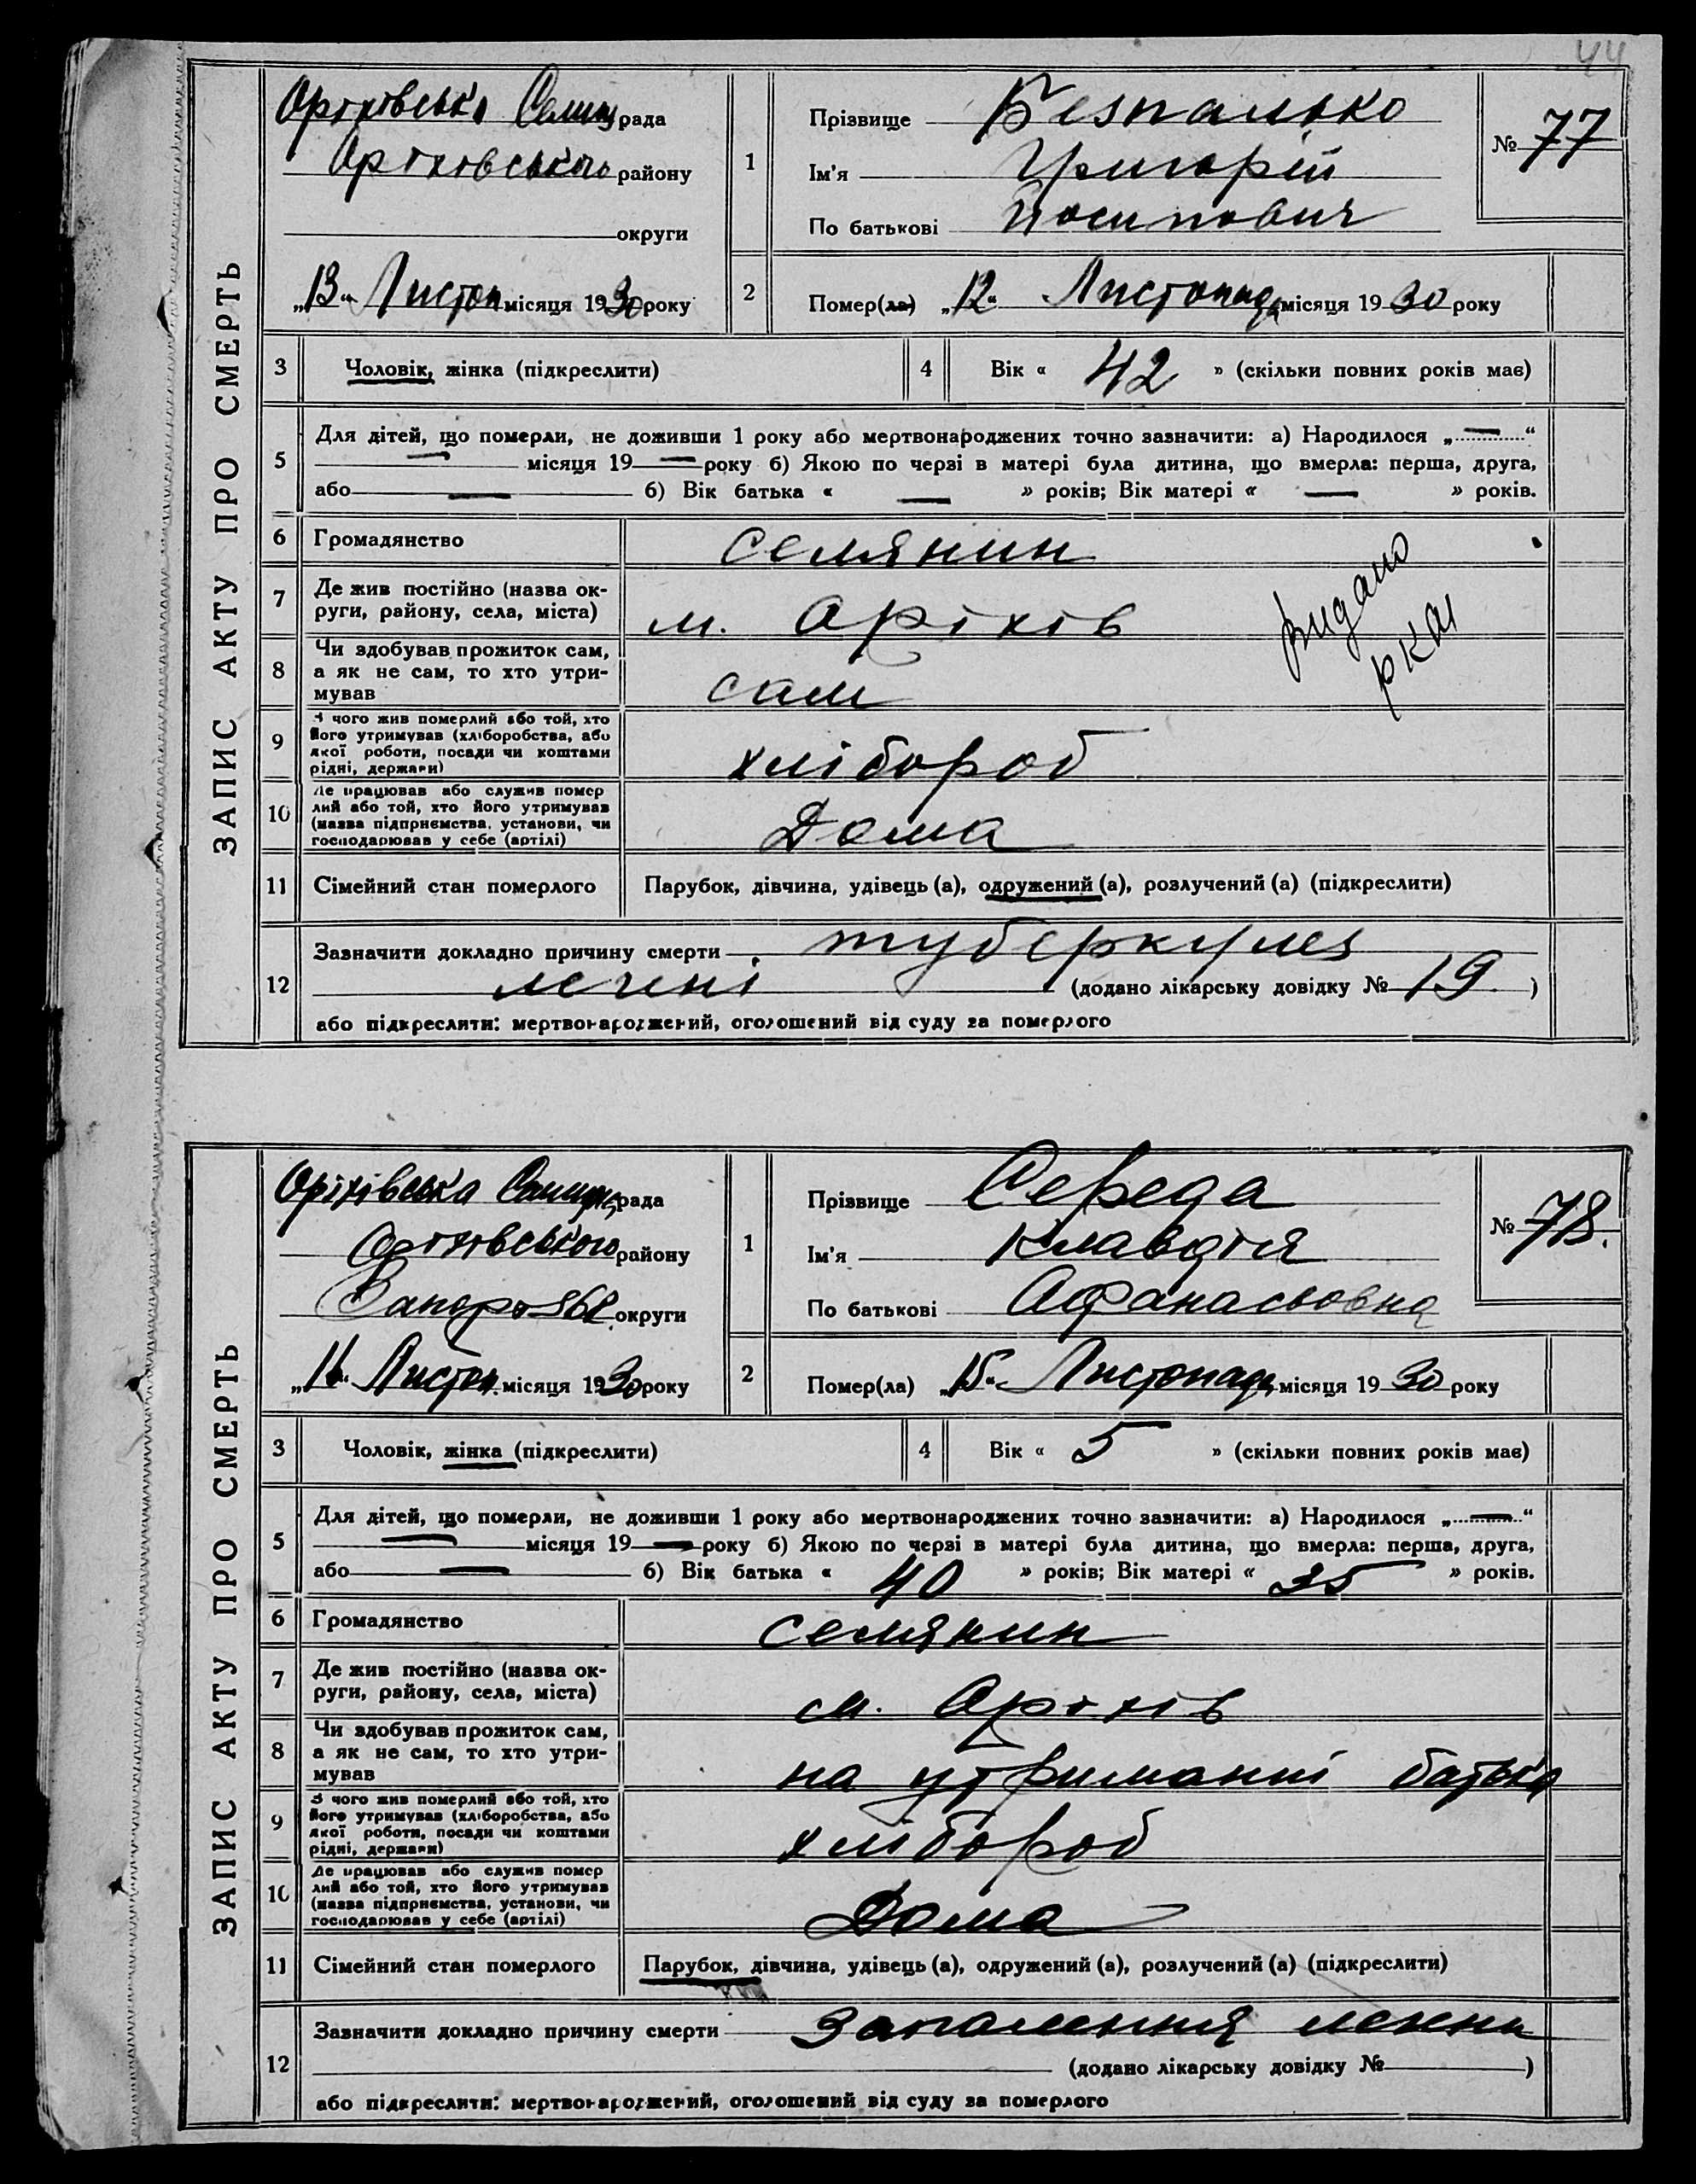 44
ЗАПИС АКТУ ПРО СМЕРТЬ
Оріхівська Селищ рада
Оріховського району
округи
„13“ Листоп місяця 1930 року
1
Прізвище Безпалько
Ім'я Григорій
По батькові Йосипович
№ 77
2
Помер(ла) „12“ Листопада місяця 1930 року
3 Чоловік, жінка (підкреслити)
4 Вік « 42 » (скільки повних років має)
5 Для дітей, що померли, не доживши 1 року або мертвонароджених точно зазначити: а) Народилося „—“
— місяця 19— року б) Якою по черзі в матері була дитина, що вмерла: перша, друга,
або — б) Вік батька « — » років; Вік матері « — » років.
6 Громадянство селянин
7 Де жив постійно (назва ок-
руги, району, села, міста) м. Оріхів
видано
8 Чи здобував прожиток сам,
а як не сам, то хто утри-
мував сам
9 З чого жив померлий або той, хто
його утримував (хліборобства, або
якої роботи, посади чи коштами
рідні, держави) хлібороб
10 Де працював або служив помер
лий або той, хто його утримував
(назва підприємства, установи, чи
господарював у себе (артілі) Дома
11 Сімейний стан померлого Парубок, дівчина, удівець (а), одружений (а), розлучений (а) (підкреслити)
12 Зазначити докладно причину смерти туберкульоз
легені (додано лікарську довідку № 19 )
або підкреслити: мертвонароджений, оголошений від суду за померлого
ЗАПИС АКТУ ПРО СМЕРТЬ
Оріхівська рада
Оріхівського району
округи
„16“ Листоп місяця 1930 року
1
Прізвище Середа
Ім'я Клавдія
По батькові Афанасьовна
№ 78.
2
Помер(ла) „15“ Листопада місяця 1930 року
3 Чоловік, жінка (підкреслити)
4 Вік « 5 » (скільки повних років має)
5 Для дітей, що померли, не доживши 1 року або мертвонароджених точно зазначити: а) Народилося „—“
— місяця 19— року б) Якою по черзі в матері була дитина, що вмерла: перша, друга,
або — б) Вік батька « 40 » років; Вік матері « 35 » років.
6 Громадянство селянин
7 Де жив постійно (назва ок-
руги, району, села, міста) м. Оріхів
8 Чи здобував прожиток сам,
а як не сам, то хто утри-
мував на утриманні батька
9 З чого жив померлий або той, хто
його утримував (хліборобства, або
якої роботи, посади чи коштами
рідні, держави) хлібороб
10 Де працював або служив помер
лий або той, хто його утримував
(назва підприємства, установи, чи
господарював у себе (артілі) Дома
11 Сімейний стан померлого Парубок, дівчина, удівець (а), одружений (а), розлучений (а) (підкреслити)
12 Зазначити докладно причину смерти Запалення
(додано лікарську довідку № )
або підкреслити: мертвонароджений, оголошений від суду за померлого